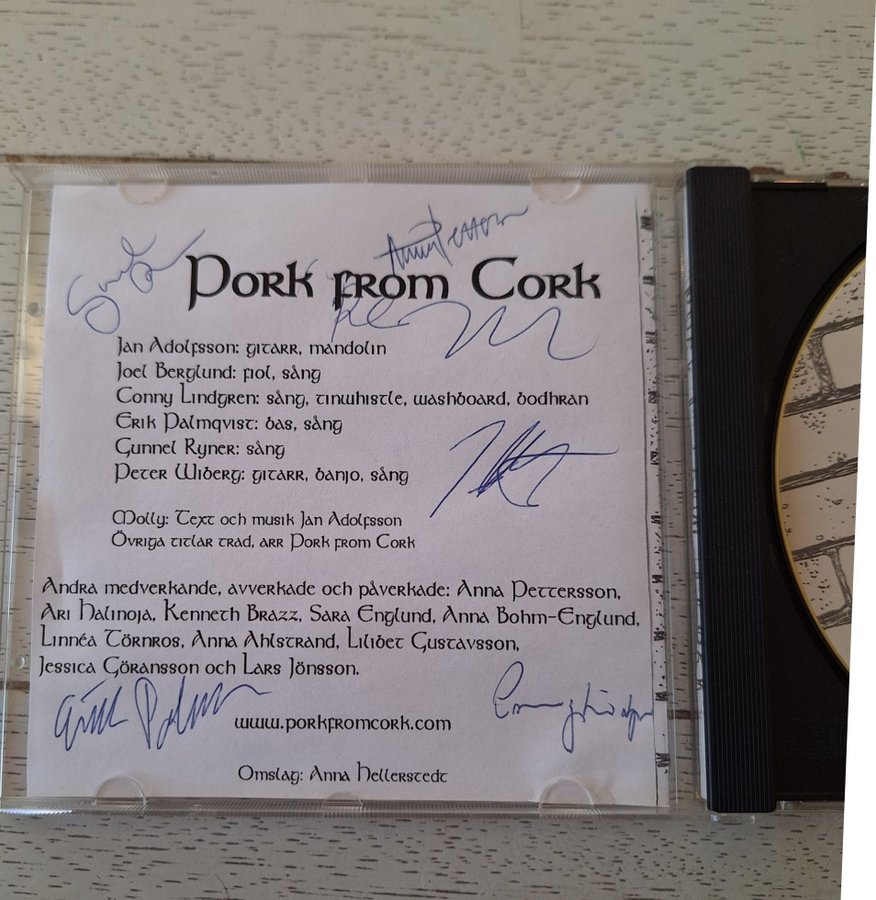 Pork from Cork
Jan Adolfsson: gitarr, mandolin
Joel Berglund: fiol, sång
Conny Lindgren: sång, tinwhistle, washboard, bodhran
Erik Palmqvist: bas, sång
Gunnel Ryner: sång
Peter Wiberg: gitarr, banjo, sång
Molly: Text och musik Jan Adolfsson
Övriga titlar trad, arr Pork from Cork
Andra medverkande, avverkade och påverkade: Anna Pettersson,
Ari Halinoja, Kenneth Brazz, Sara Englund, Anna Bohm-Englund,
Linnéa Törnros, Anna Ahlstrand, Lilibet Gustavsson,
Jessica Göransson och Lars Jönsson.
www.porkfromcork.com
Omslag: Anna Hellerstedt